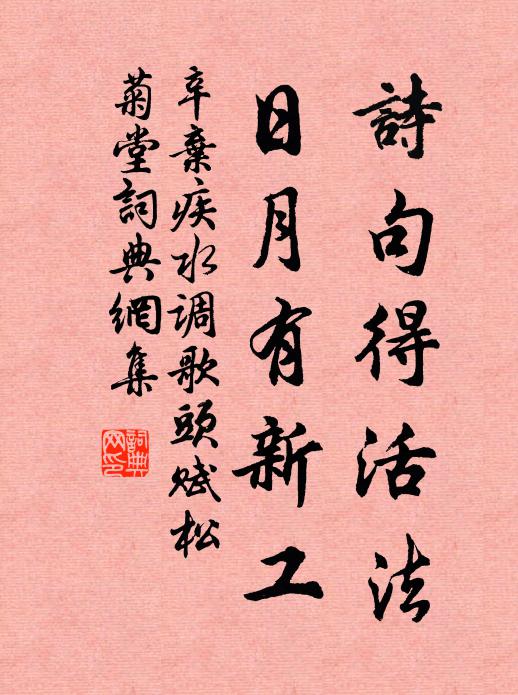 詩句得活法
日月有新工
辛棄疾水调歌頭賦松
菊堂詞典網集
詞典
网印